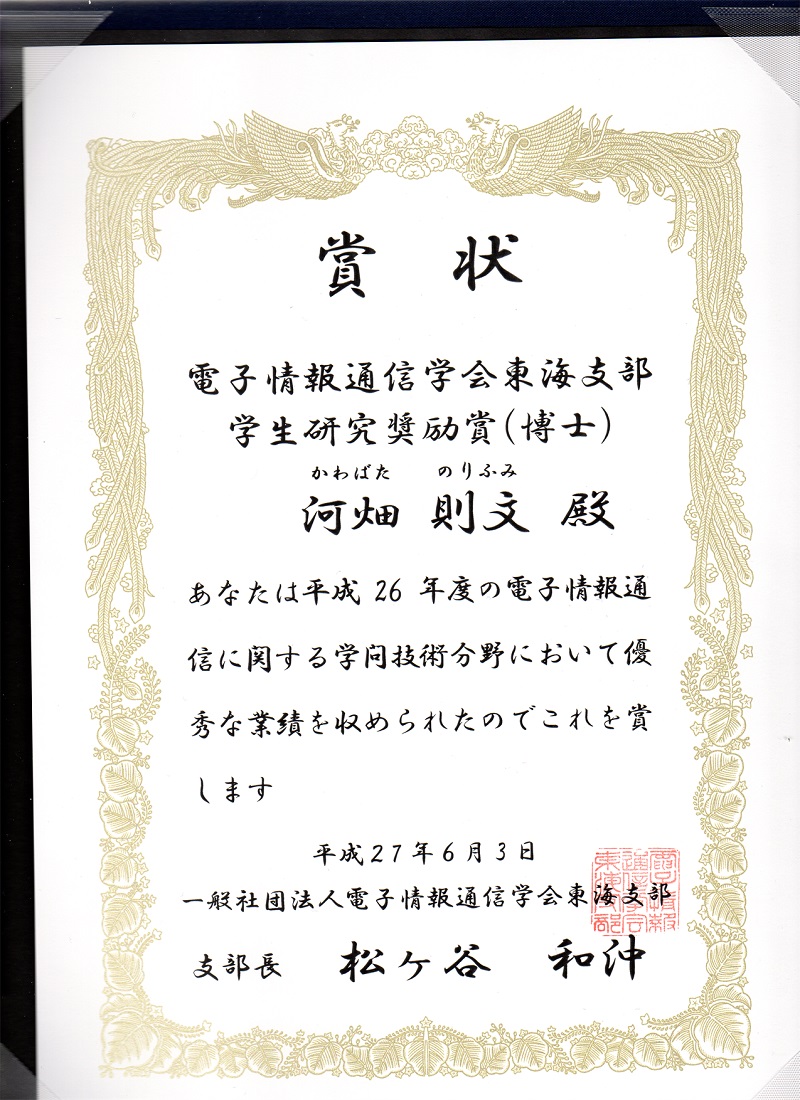 賞 状
電子情報通信学会東海支部
学生研究奨励賞(博士)
かわばた のりふみ
河畑 則文 殿
あなたは平成 26 年度の電子情報通
信に関する学問技術分野において優
秀な業績を収められたのでこれを賞
します
平成27年6月3日
一般社団法人電子情報通信学会東海支部
支部長 松ヶ谷 和沖